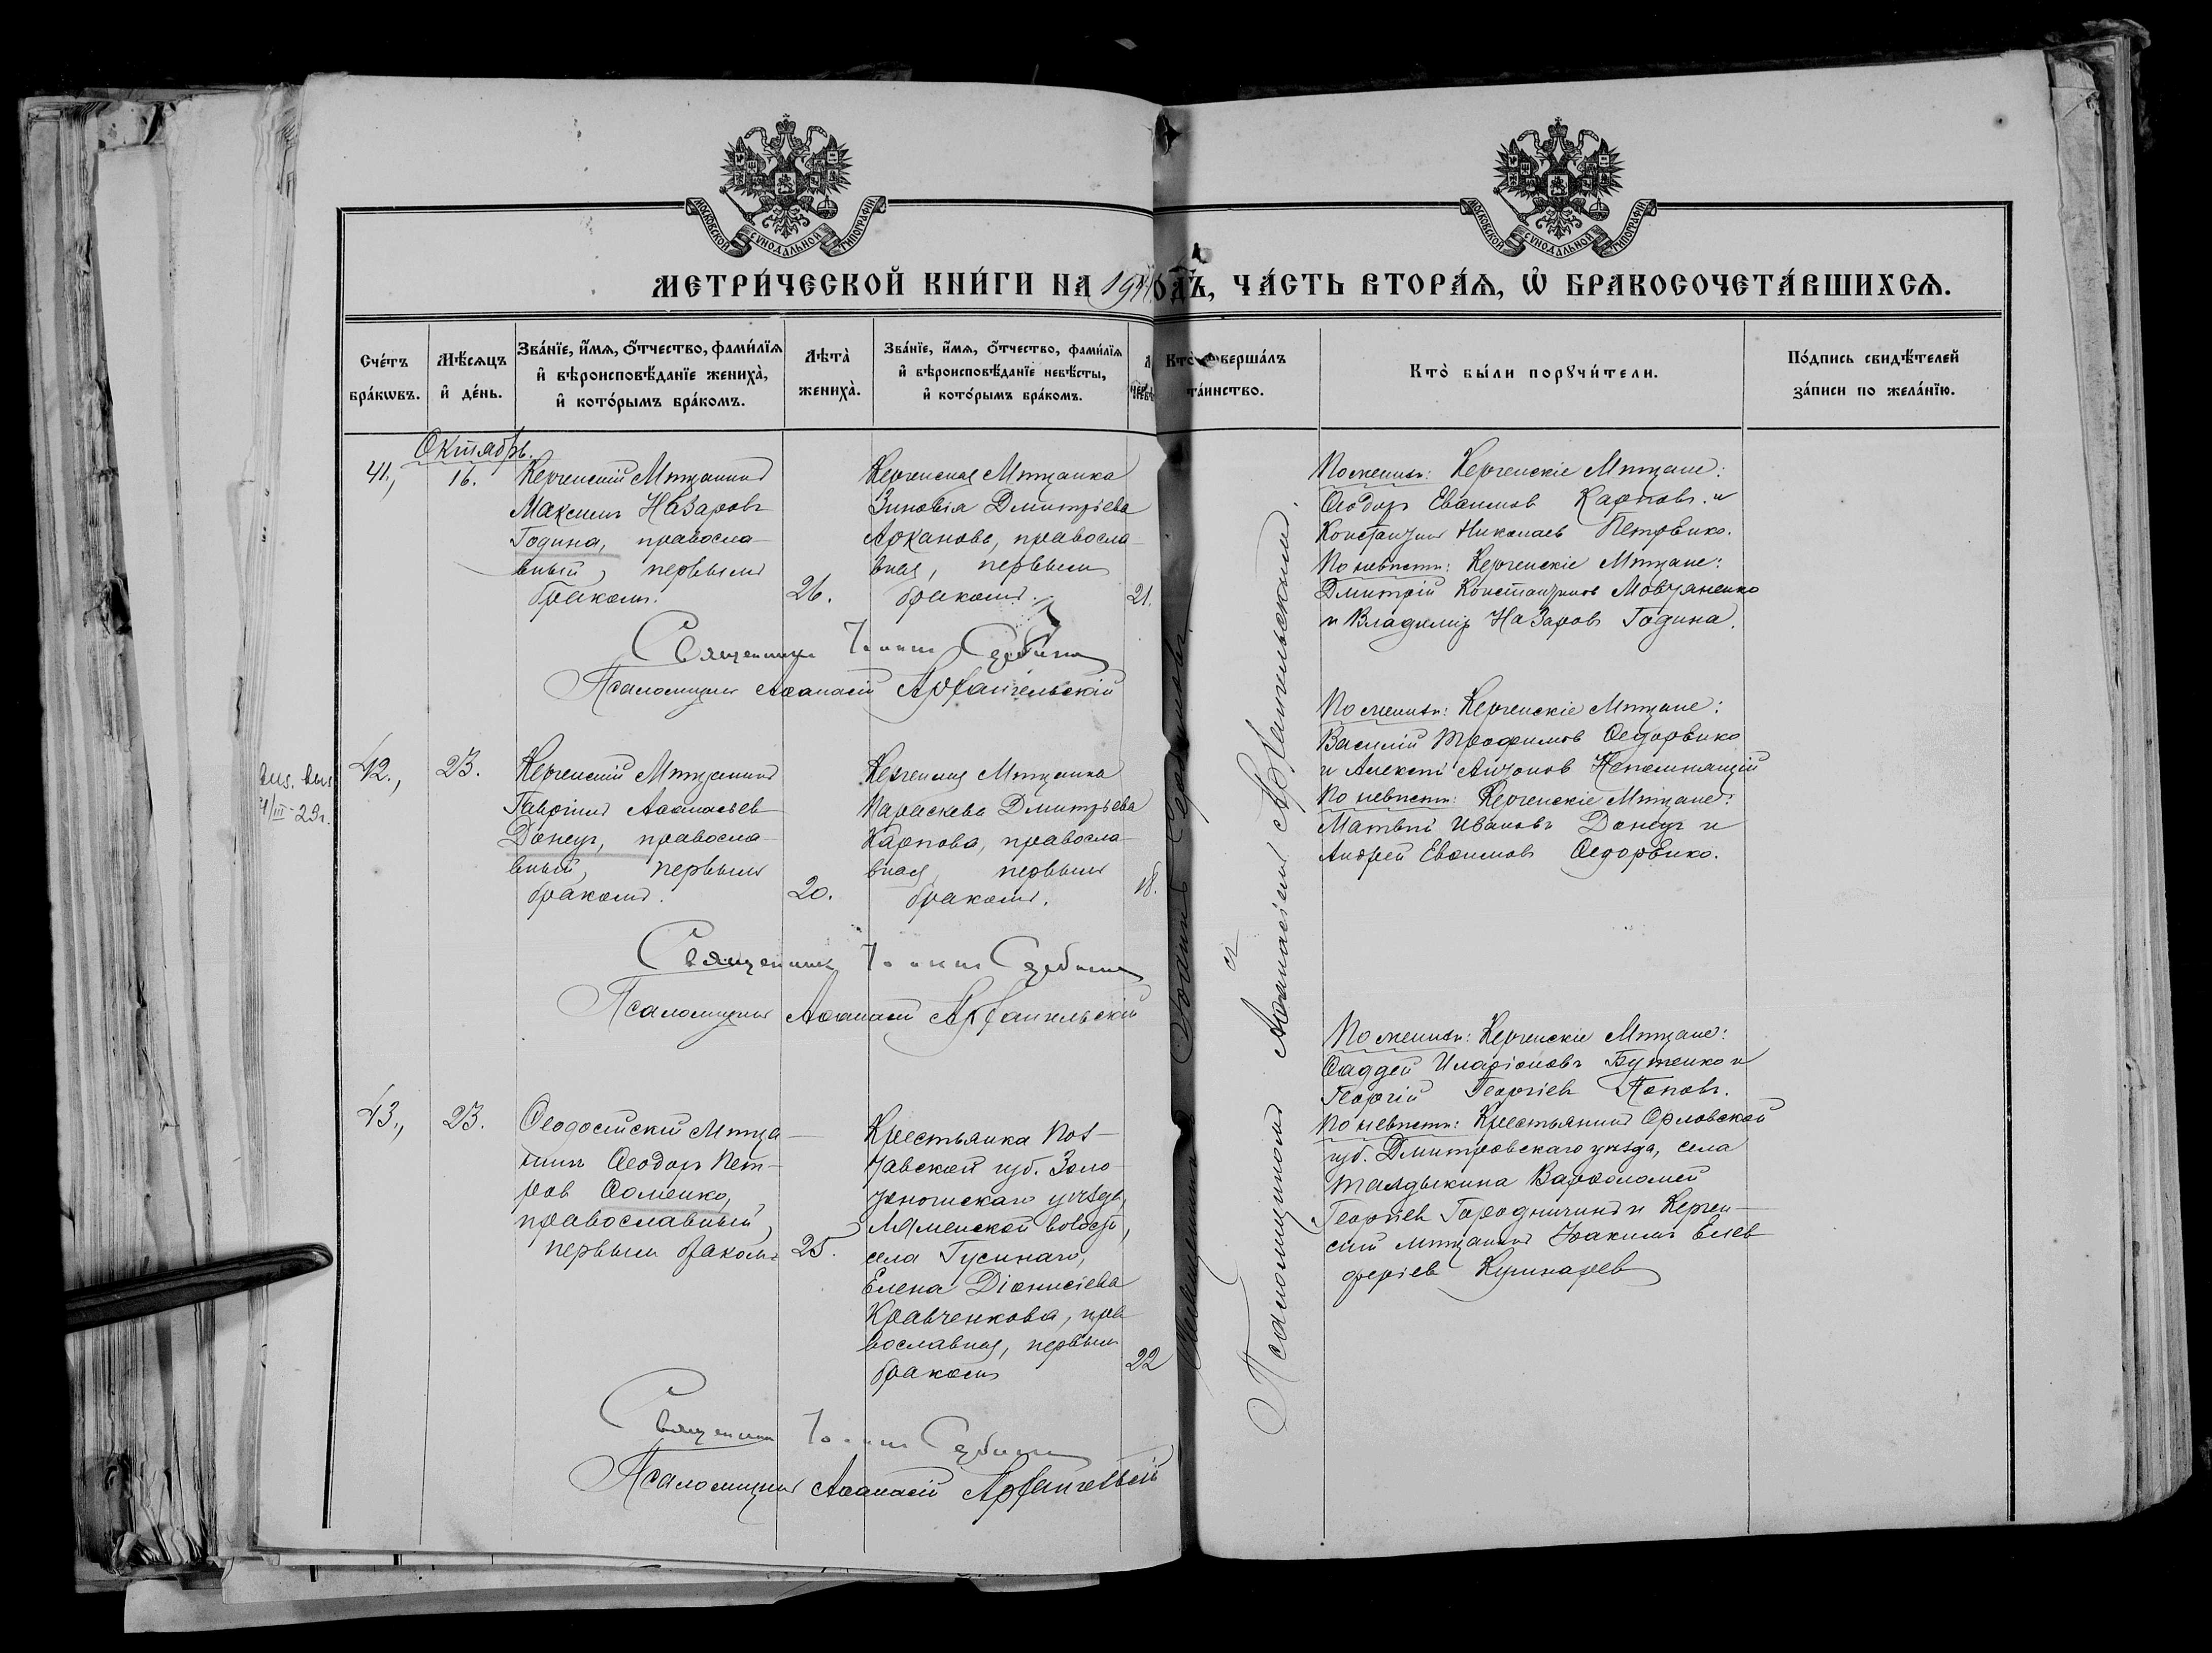 МОСКОВСКОЙ СѴНОДАЛЬНОЙ ТИПОГРАФІИ
МОСКОВСКОЙ СѴНОДАЛЬНОЙ ТИПОГРАФІИ
МЕТРИ́ЧЕСКОЙ КНИ́ГИ НА 19 ГОДЪ, ЧА́СТЬ ВТОРА́Ѧ, Ѡ҆ БРАКОСОЧЕТА́ВШИХСѦ.
Сче́тъ бра́кѡвъ.
Мѣ́сѧцъ и҆ де́нь.
Зва́нїе, и҆́мѧ, ѻ҆́тчество, фами́лїѧ и҆ вѣроисповѣ́данїе жениха̀, и҆ кото́рымъ бра́комъ.
Лѣта̀ жениха̀.
Зва́нїе, и҆́мѧ, ѻ҆́тчество, фами́лїѧ и҆ вѣроисповѣ́данїе невѣ́сты, и҆ кото́рымъ бра́комъ.
Кто̀ соверша́лъ та́инство.
Кто̀ бы́ли порꙋчи́тели.
По́дпись свидѣ́телей за́писи по жела́нїю.
Октябрь.
41., 16.
Керченскій Мѣщанинъ
Максимъ Назаровъ
Година, правосла-
вный, первымъ
бракомъ.
26.
Керченская Мѣщанка
Зиновія Дмитріева
Арканова, правосла-
вная, первымъ
бракомъ.
21.
По женихѣ: Керченскіе Мѣщане:
Ѳеодоръ Евѳимовъ Карповъ и
Константинъ Николаевъ Петренко.
По невѣстѣ: Керченскіе Мѣщане:
Дмитрій Константиновъ Мовчаненко
и Владиміръ Назаровъ Година.
Священникъ Іоаннъ Сербиновъ
Псаломщикъ Аѳанасій Архангельскій
42., 23.
Керченскій Мѣщанинъ
Гавріилъ Аѳанасьевъ
Донецъ, правосла-
вный, первымъ
бракомъ.
20.
Керченская Мѣщанка
Параскева Дмитріева
Карпова, правосла-
вная, первымъ
бракомъ.
18.
По женихѣ: Керченскіе Мѣщане:
Василій Трофимовъ Ѳедоренко
и Алексѣй Антоновъ Непомнящій
По невѣстѣ: Керченскіе Мѣщане:
Матвѣй Ивановъ Донецъ и
Андрей Евѳимовъ Ѳедоренко.
Священникъ Іоаннъ Сербиновъ
Псаломщикъ Аѳанасій Архангельскій
43., 23.
Ѳеодосійскій Мѣща-
нинъ Ѳеодоръ Пет-
ровъ Ѳоменко,
православный,
первымъ бракомъ
25.
Крестьянка Пол-
тавской губ. Золо-
тоношскаго уѣзда,
села Гусинаго,
Елена Діонисіева
Кравченкова, пра-
вославная, первымъ
бракомъ
22
По женихѣ: Керченскіе Мѣщане:
Ѳаддей Иларіоновъ Бутенко и
Георгій Георгіевъ Поповъ.
По невѣстѣ: Крестьянинъ Орловской
губ. Дмитровскаго уѣзда, села
Талдыкина Варѳоломей
Георгіевъ Городничинъ и Керчен-
скій мѣщанинъ Іоакимъ Елев-
феріевъ Кушнаревъ
Священникъ Іоаннъ Сербиновъ
Псаломщикъ Аѳанасій Архангельскій
съ
Псаломщикомъ Аѳанасіемъ Архангельскимъ.